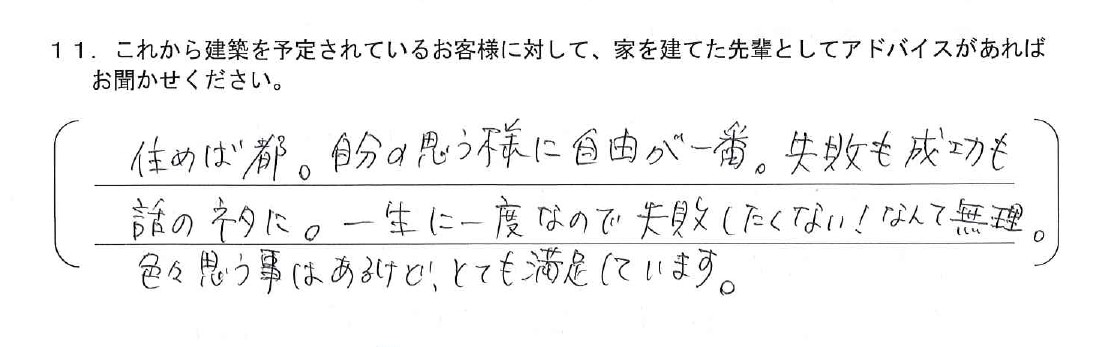 １１．これから建築を予定されているお客様に対して、家を建てた先輩としてアドバイスがあれば
お聞かせください。
住めば都。自分の思う様に自由が一番。失敗も成功も
話のネタに。一生に一度なので失敗したくない！なんて無理。
色々思う事はあるけど、とても満足しています。